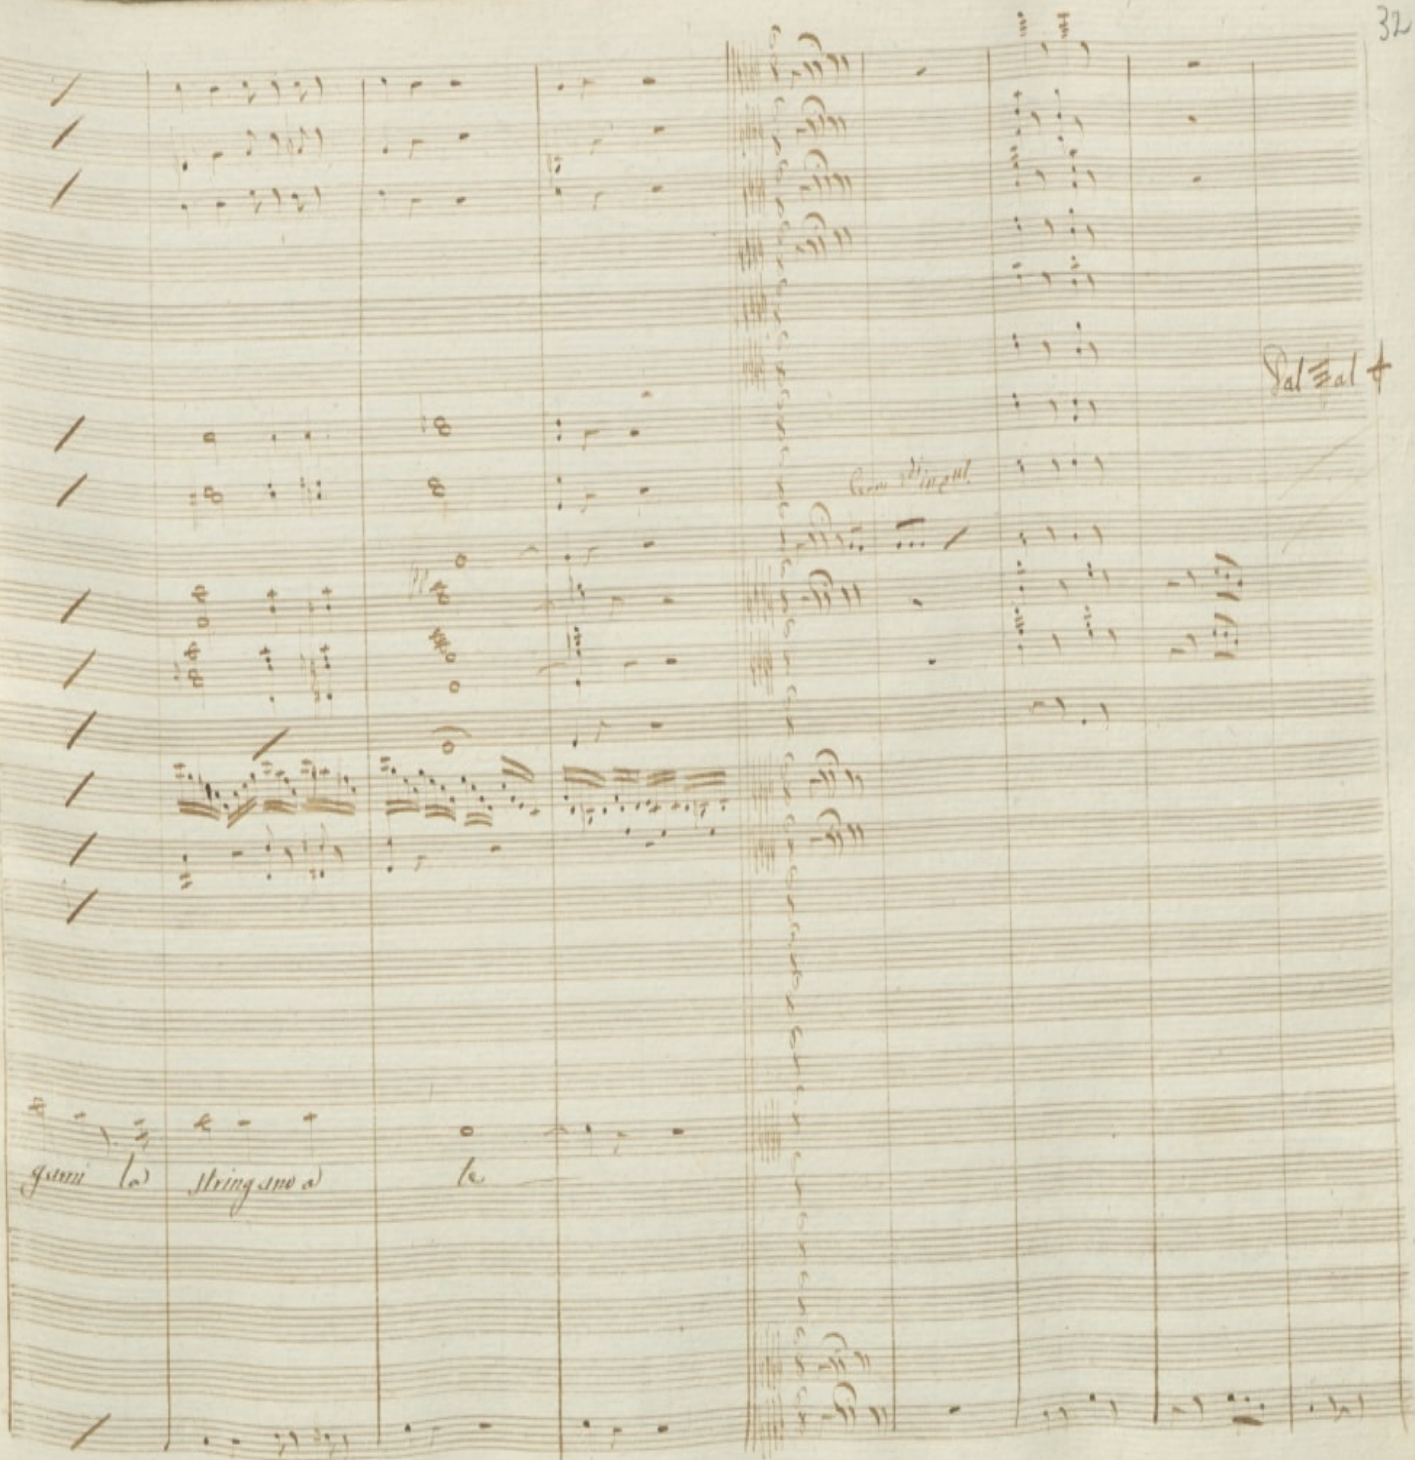 32
Dal 𝄋 al 𝄌
gami la stringano a te